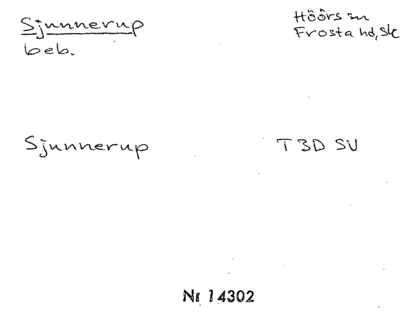 Sjunnerup
beb.
Höörs sn
Frosta hd, Sk
Sjunnerup
T 3D SV
Nr 14302